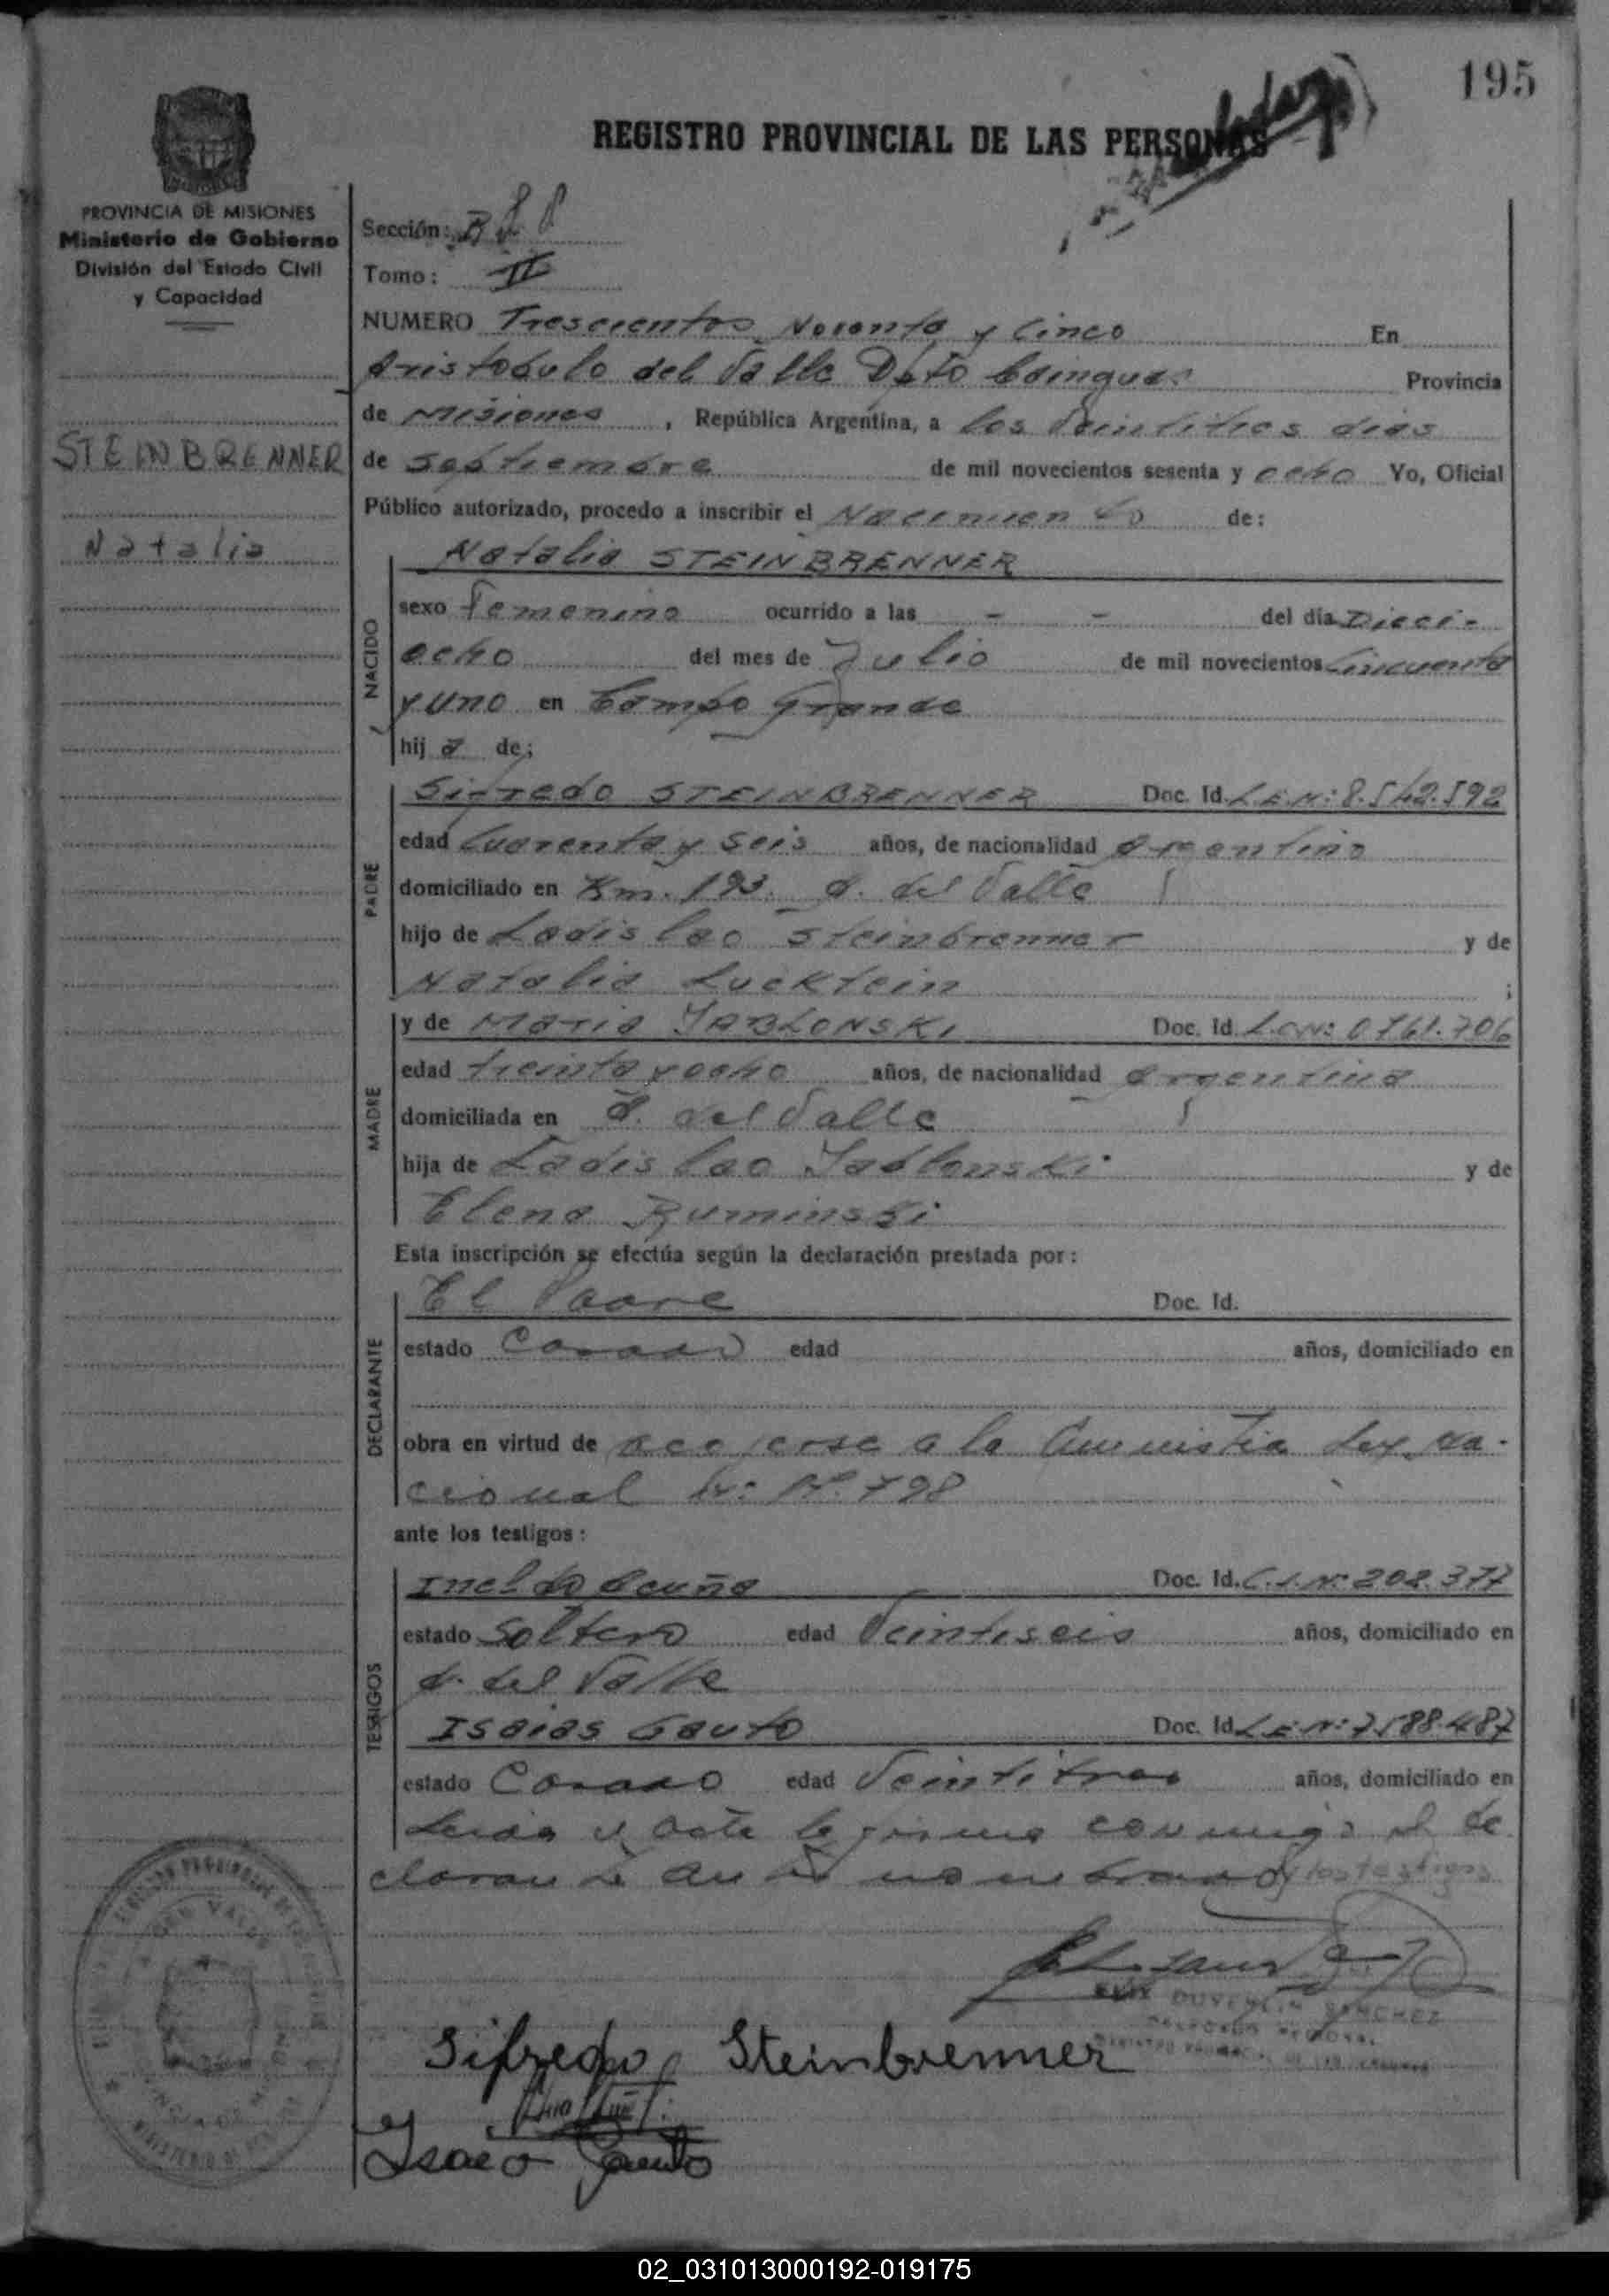 195
REGISTRO PROVINCIAL DE LAS PERSONAS
PROVINCIA DE MISIONES
Ministerio de Gobierno
División del Estado Civil
y Capacidad
STEINBRENNER
Natalia
Sección:
Tomo: II
NUMERO Trescientos Noventa y Cinco En
Aristobulo del Valle Dpto Cainguas Provincia
de Misiones, República Argentina, a los Veintitres dias
de Septiembre de mil novecientos sesenta y ocho Yo, Oficial
Público autorizado, procedo a inscribir el Nacimiento de:
NACIDO
Natalia STEINBRENNER
sexo Femenino ocurrido a las - - del día Dieci-
ocho del mes de Julio de mil novecientos Cincuenta
y uno en Campo Grande
hija de;
PADRE
Sifredo STEINBRENNER Doc. Id. L.E.N: 8.542.592
edad Cuarenta y Seis años, de nacionalidad Argentino
domiciliado en Km. 193. A. del Valle
hijo de Ladislao Steinbrenner y de
Natalia Lucktein ;
MADRE
y de Maria JABLONSKI Doc. Id. L.C.N: 0761.706
edad treinta y ocho años, de nacionalidad Argentina
domiciliada en A. del Valle
hija de Ladislao Jablonski y de
Elena Ruminski
Esta inscripción se efectúa según la declaración prestada por:
DECLARANTE
El Padre Doc. Id.
estado Casado edad años, domiciliado en
obra en virtud de acogerse a la Amnistia Ley Na-
cional N: 17.798
ante los testigos:
TESTIGOS
Acuña Doc. Id. C.I.N: 202.377
estado Soltero edad Veintiseis años, domiciliado en
A. del Valle
Isaias Gauto Doc. Id. L.E.N: 7.588.487
estado Casado edad Veintitres años, domiciliado en
Leida el Acta la firma conmigo el de
clarante y los testigos
SANCHEZ
Sifredo Steinbrenner
Gauto
02_031013000192-019175